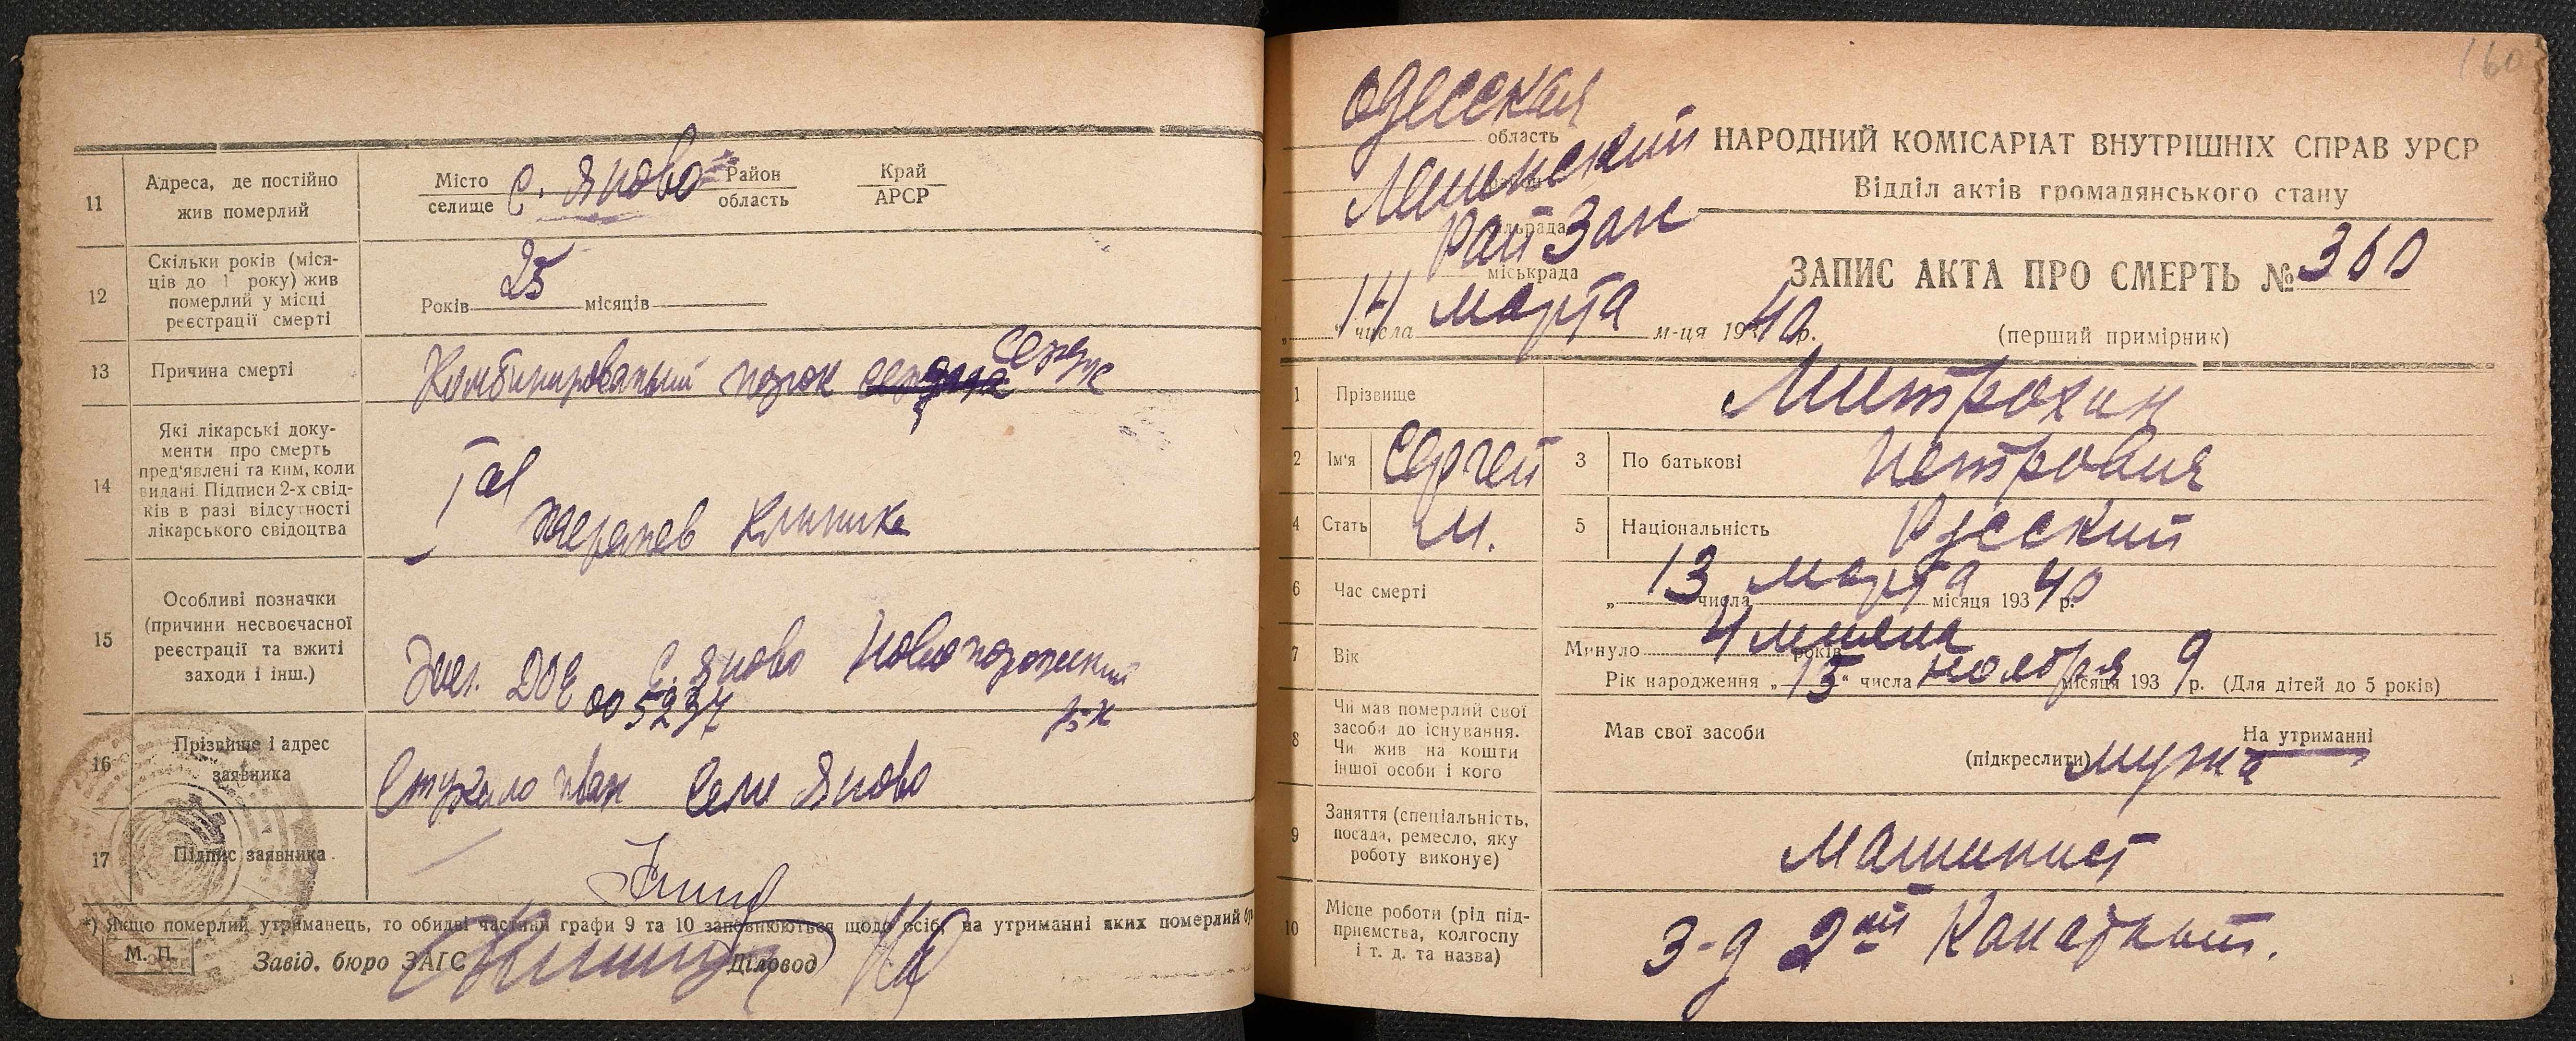 11
Адреса, де постійно
жив померлий
Місто
селище
с. Яново
Район
область
Край
АРСР
12
Скільки років (міся-
ців до 1 року) жив
померлий у місці
реєстрації смерті
Років 25 місяців
13
Причина смерті
Комбинированый порок
14
Які лікарські доку-
менти про смерть
пред'явлені та ким, коли
видані. Підписи 2-х свід-
ків в разі відсутності
лікарського свідоцтва
терапев клинике
15
Особливі позначки
(причини несвоєчасної
реєстрації та вжиті
заходи і інш.)
с. Яново
005237
р-н
16
Прізвище і адрес
заявника
Иван Село Яново
17
Підпис заявника
*) Якщо померлий утриманець, то обидві частини графи 9 та 10 заповнюються щодо осіб, на утриманні яких померлий
М. П.
Завід. бюро ЗАГС
Діловод
160
Одесская
область
район
Рай Загс
сільрада
міськрада
14 числа марта м-ця 1940 р.
НАРОДНИЙ КОМІСАРІАТ ВНУТРІШНІХ СПРАВ УРСР
Відділ актів громадянського стану
ЗАПИС АКТА ПРО СМЕРТЬ № 360
(перший примірник)
1 Прізвище Митрохин
2 Ім'я Сергей 3 По батькові Петрович
4 Стать М. 5 Національність Русский
6 Час смерті „13 числа марта місяця 19340 р.
7 Вік Минуло 4 років
Рік народження „15" числа ноября місяця 1939 р. (Для дітей до 5 років)
8
Чи мав померлий свої
засоби до існування.
Чи жив на кошти
іншої особи і кого
Мав свої засоби На утриманні
(підкреслити) мужа
9
Заняття (спеціальність,
посада, ремесло, яку
роботу виконує)
Машинист
10
Місце роботи (рід під-
приємства, колгоспу
і т. д. та назва)
З-д 2ой Канатный.